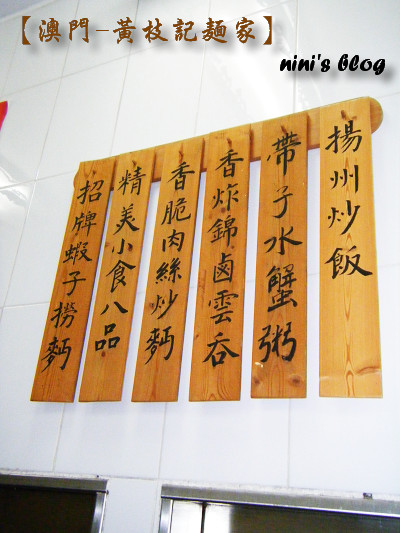 【澳門-黃枝記麵家】
nini's blog
揚州炒飯
帶子水蟹粥
香炸錦鹵雲吞
香脆肉絲炒麪
精美小食八品
招牌蝦子撈麪